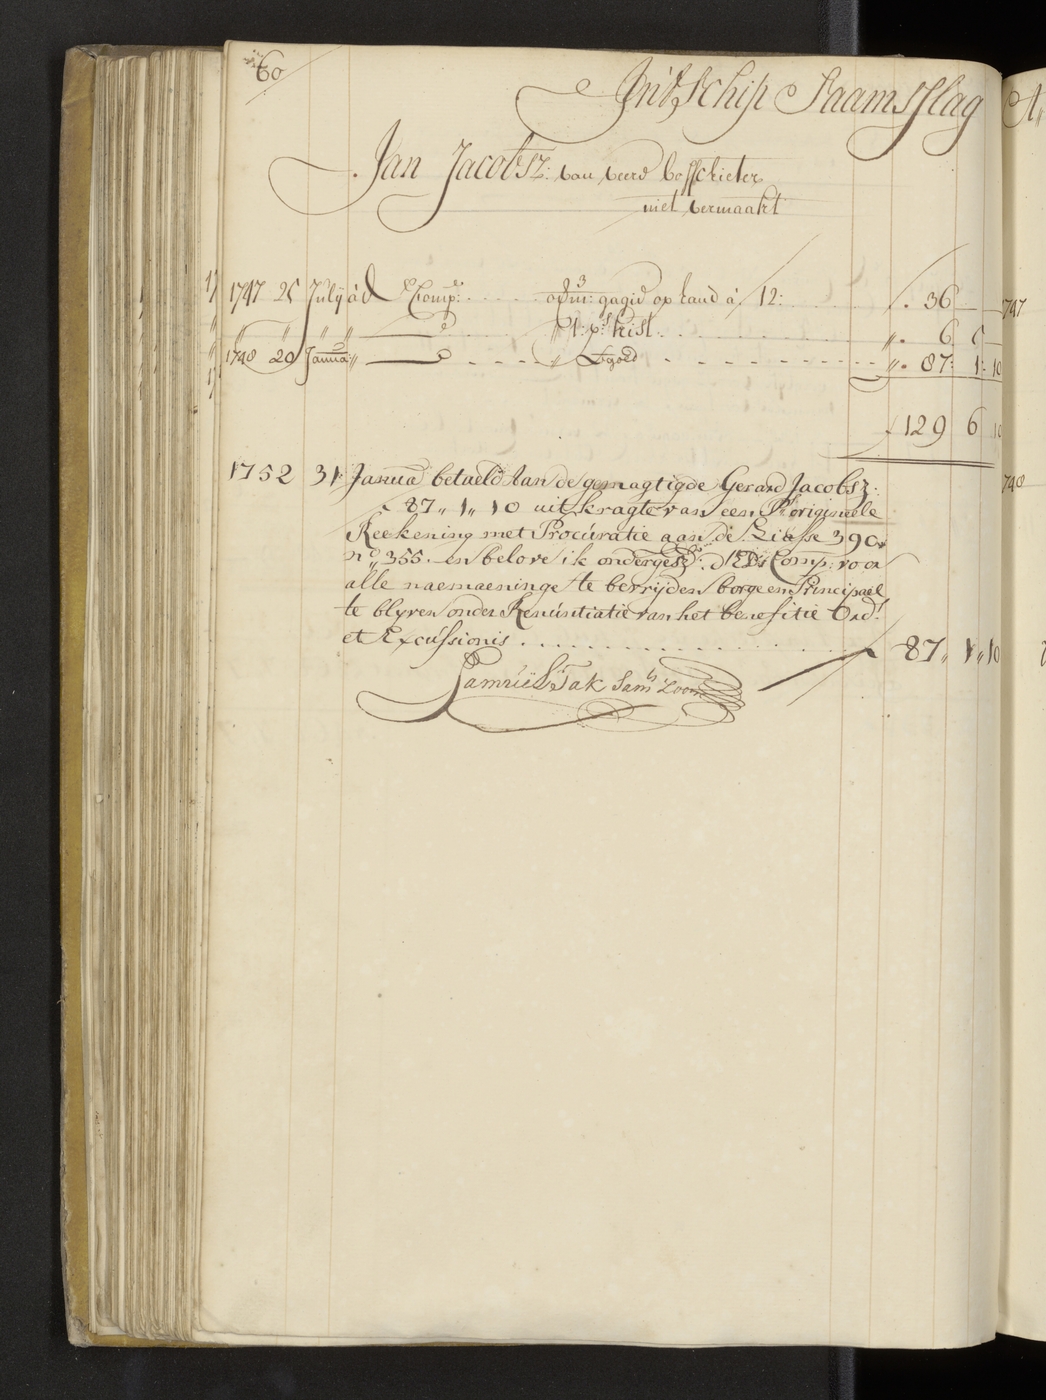 60
In't Schip Saamsslag
Jan Jacobsz: van veere bosschieter
niet vermaakt
1747 25 July à d'E Comp:e op 3/m: gagie op hand à ƒ 12: ƒ 36
" " " " " 1: p:s kist. " 6 6
1748 20 Janua: " " goed " 87: 1: 10
ƒ 129 6 10
1752 31: Janua betaeld Aan de gemagtigde Gerard Jacobsz:
ƒ 87 „ 1 „ 10 uit kragte van een Pr originiele
Reekening met Procuratie aan de Liasse 390
n.o 355. en belove ik ondergesz: d'E: Comp: voor
alle naemaeninge te bevrijden borge en Principael
te blyven onder Renuntiatie van het benefitie Ord:
et Excussionis . . . . . 87 „ 1 „ 10
Samuel Tak Sam:ls Zoon
1747
748